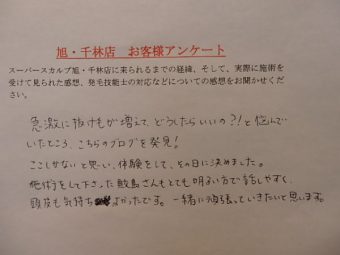 旭・千林店 お客様アンケート
スーパースカルプ旭・千林店に来られるまでの経緯、そして、実際に施術を
受けて見られた感想、発毛技能士の対応などについての感想をお聞かせくだ
さい。
急激に抜けもが増えて、どうしたらいいの?!と悩んで
いたところ、こちらのブログを発見!
ここしかないと思い、体験をして、その日に決めました。
施術をして下さった鮫島さんもとても明るい方で話しやすく、
頭皮も気持ちよかったです。一緒に頑張っていきたいと思います。